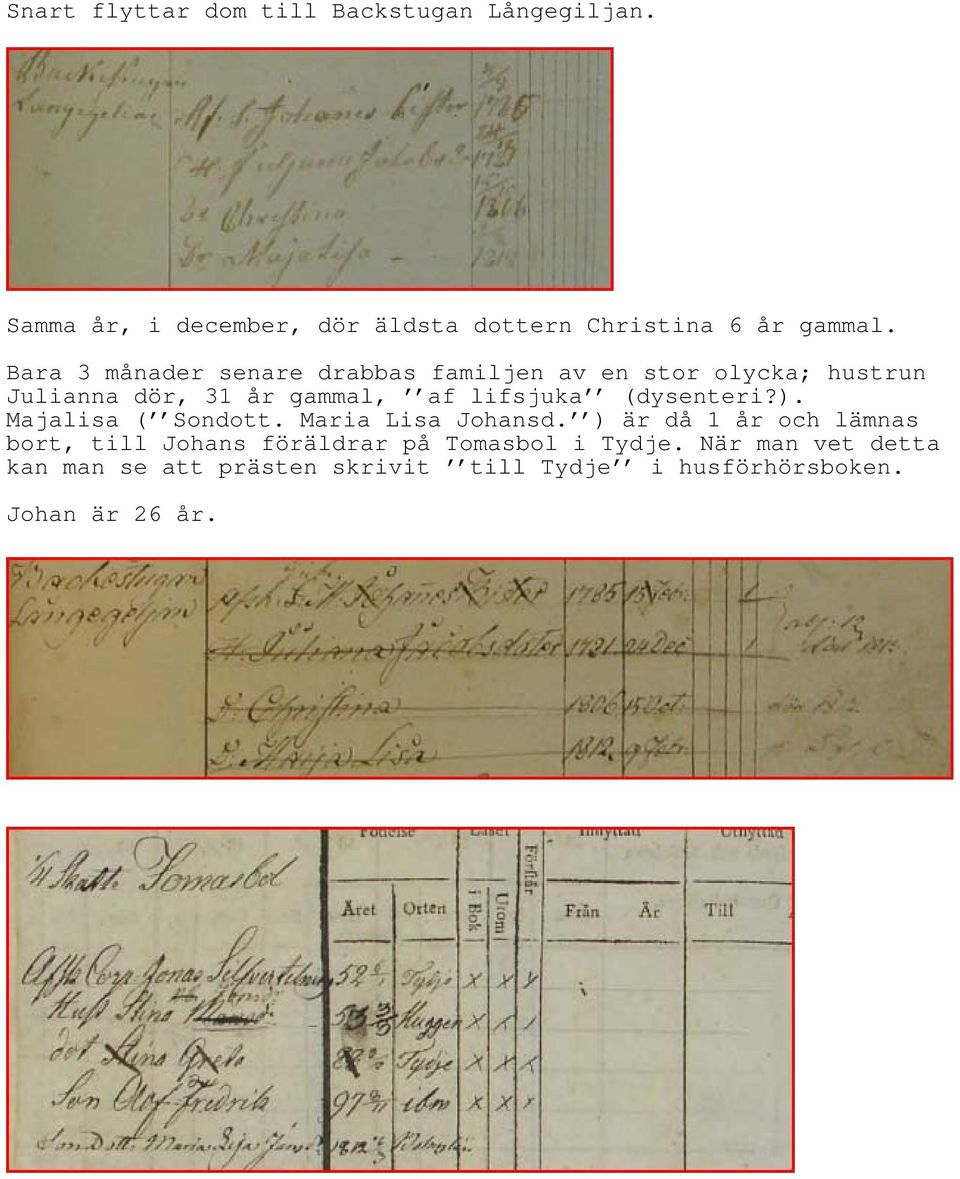 Snart flyttar dom till Backstugan Långegiljan.
Backestugan
Langegelian
Af. S. Johanes Fister 1785
H. Juliana Jacobsd.
Dr Christina 1806
Dr Maja Lisa 1812
Samma år, i december, dör äldsta dottern Christina 6 år gammal.
Bara 3 månader senare drabbas familjen av en stor olycka; hustrun
Julianna dör, 31 år gammal, ’’af lifsjuka’’ (dysenteri?).
Majalisa (’’Sondott. Maria Lisa Johansd.’’) är då 1 år och lämnas
bort, till Johans föräldrar på Tomasbol i Tydje. När man vet detta
kan man se att prästen skrivit ’’till Tydje’’ i husförhörsboken.
Johan är 26 år.
Backestugan
Långegeljan
Johannes Fister 1785 15 Febr. 1
H. Juliana Jacobsdoter 1781 24 Dec 1
D. Christina 1806 15 Oct. död 1812.
D. Maija Lisa 1812. 9 Febr.
Födelse Läset Inflyttad Utflyttad
1/4 Skatte Tomasbol
Förstår
Året Orten i Bok Utom Från År Till
Afsk. Corp Jonas 52 Tydje x x
Hust Stina 53 Kuggen x
dot Stina Greta Tydje x x
Son Olof Fredrik 97 ibm x x x
Sondott. Maria Lisa 1812